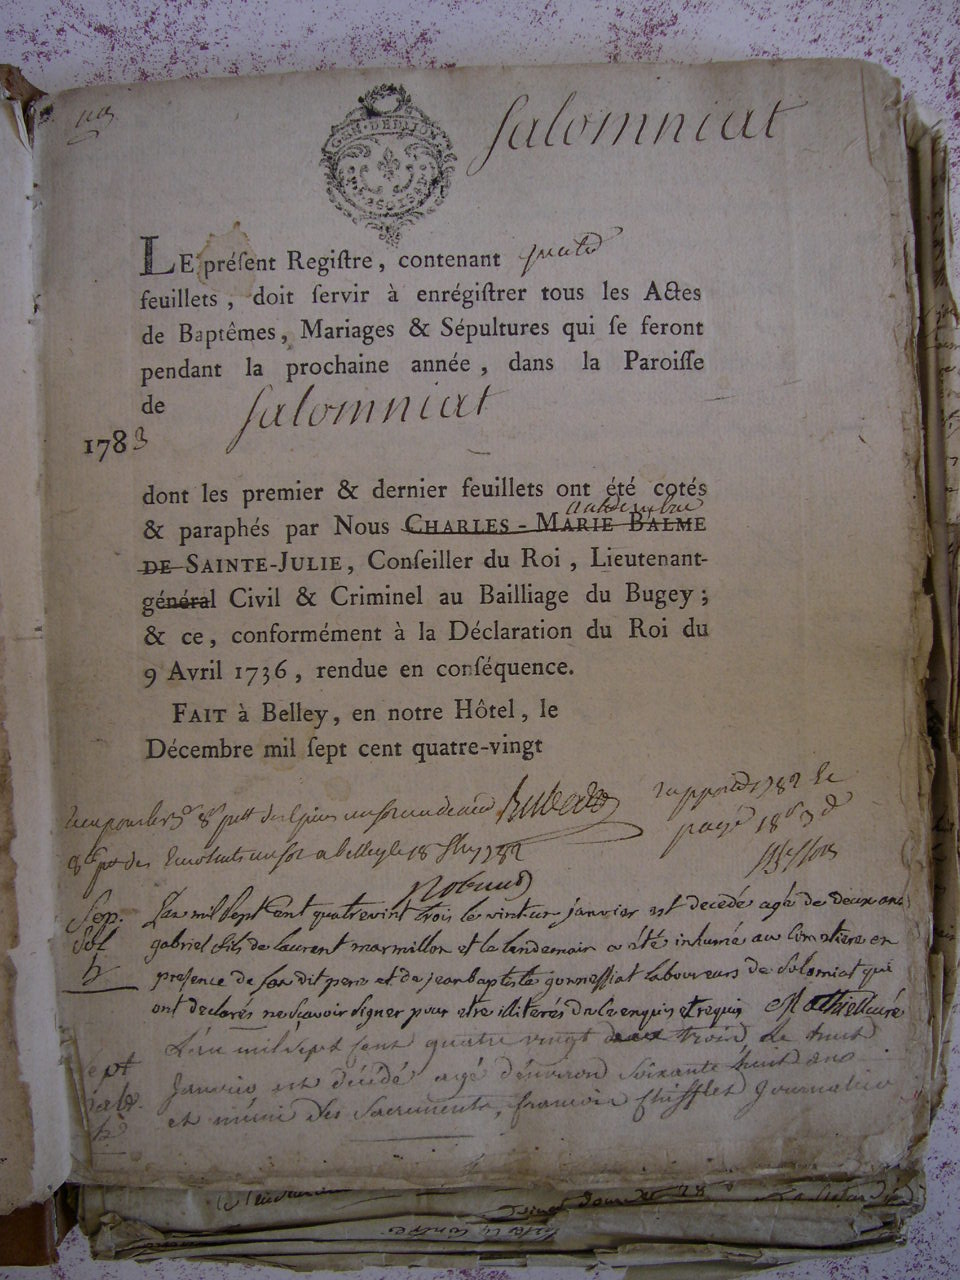 GEN. DE DIJON
Salomniat
LE préſent Regiſtre, contenant quatre
feuillets, doit ſervir à enrégiſtrer tous les Actes
de Baptêmes, Mariages & Sépultures qui ſe feront
pendant la prochaine année, dans la Paroiſſe
de Salomniat
1783
dont les premier & dernier feuillets ont été cotés
& paraphés par Nous CHARLES-MARIE BALME
DE SAINTE-JULIE, Conſeiller du Roi, Lieutenant-
général Civil & Criminel au Bailliage du Bugey;
& ce, conformément à la Déclaration du Roi du
9 Avril 1736, rendue en conſéquence.
FAIT à Belley, en notre Hôtel, le
Décembre mil ſept cent quatre-vingt
1782
payé 18
a belley le 18 1782
Sep. L'an mil Sept Cent quatrevint trois le vint un janvier est decedé agé de deux ans
gabriel fils de Laurent marmillon et le lendemain a été inhumé au Cimetiere en
presence de Son dit pere et de jean baptiste gonnessiat Laboureurs de Solomiat qui
ont declarés ne sçavoir signer pour etre illiterés de Ce enquis et requis Mathieu curé
Sept L'an mil sept cent quatre vingt trois le huit
Janvier est décédé agé d'environ soixante huit ans
et muni des Sacrements, francois Chifflet Journalier